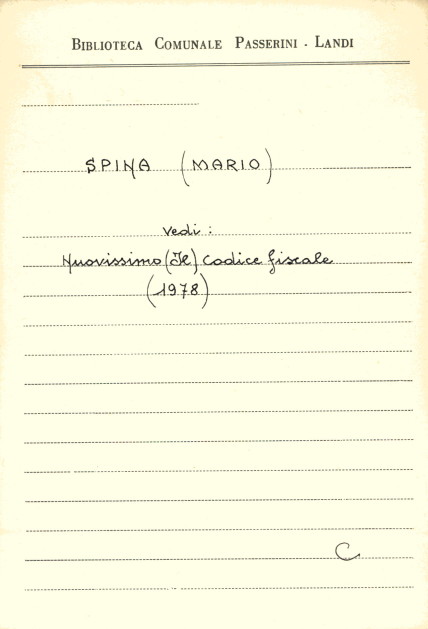 BIBLIOTECA COMUNALE PASSERINI - LANDI
SPINA (MARIO)
Vedi :
Nuovissimo (Il) Codice fiscale
(1978)
C